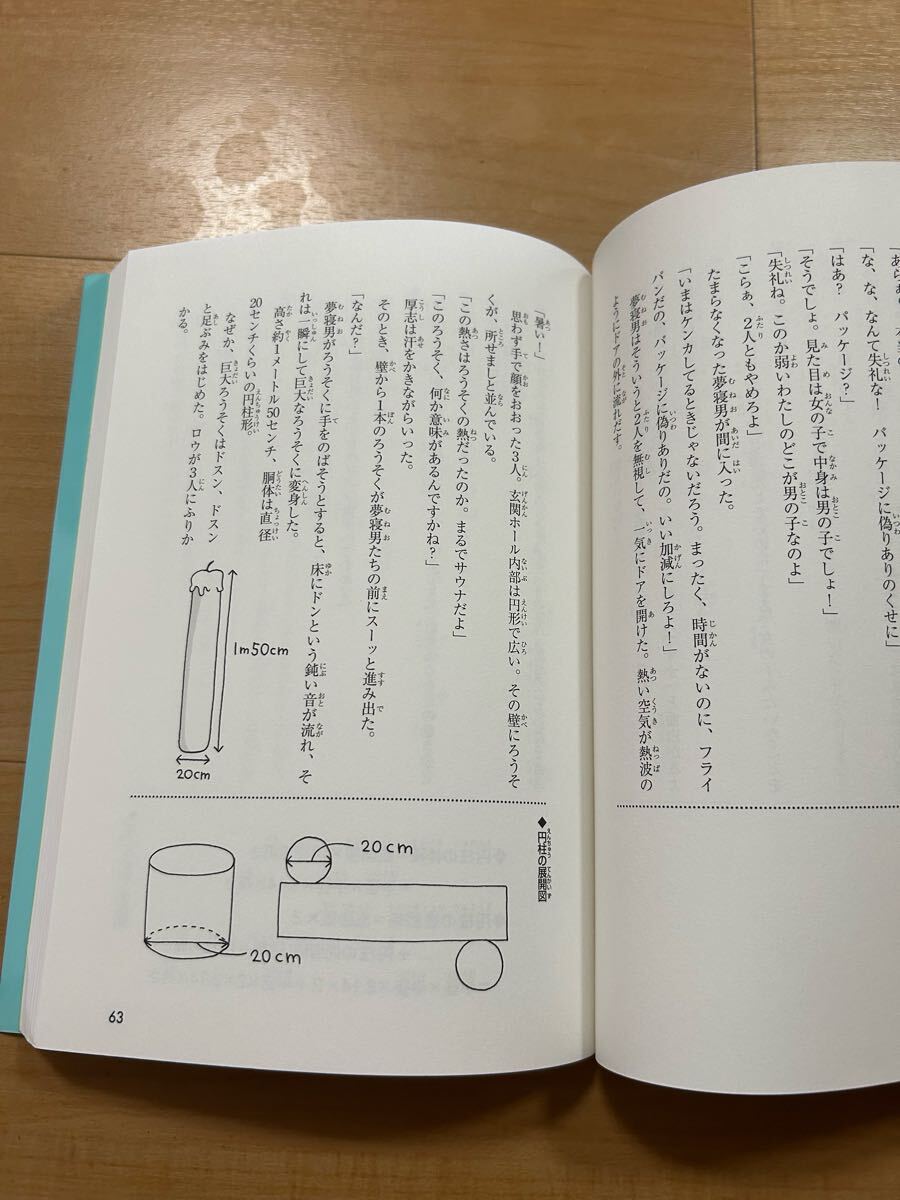 「な、な、なんて失礼な！　パッケージに偽りありのくせに」
「はあ？　パッケージ？」
「そうでしょ。見た目は女の子で中身は男の子でしょ！」
「失礼ね。このか弱いわたしのどこが男の子なのよ」
「こらぁ、2人ともやめろよ」
たまらなくなった夢寝男が間に入った。
「いまはケンカしてるときじゃないだろう。まったく、時間がないのに、フライ
パンだの、パッケージに偽りありだの。いい加減にしろよ！」
夢寝男はそういうと2人を無視して、一気にドアを開けた。熱い空気が熱波の
ようにドアの外に流れだす。
「暑い！」
思わず手で顔をおおった3人。玄関ホール内部は円形で広い。その壁にろうそ
くが、所せましと並んでいる。
「この熱さはろうそくの熱だったのか。まるでサウナだよ」
「このろうそく、何か意味があるんですかね？」
厚志は汗をかきながらいった。
そのとき、壁から1本のろうそくが夢寝男たちの前にスーッと進み出た。
「なんだ？」
夢寝男がろうそくに手をのばそうとすると、床にドンという鈍い音が流れ、そ
れは一瞬にして巨大なろうそくに変身した。
高さ約1メートル50センチ、胴体は直径
20センチくらいの円柱形。
なぜか、巨大ろうそくはドスン、ドスン
と足ぶみをはじめた。ロウが3人にふりか
かる。
1m50cm
20cm
◆円柱の展開図
20cm
20cm
63